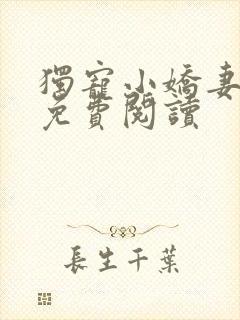 獨寵小嬌妻
免費閱讀
長生千葉